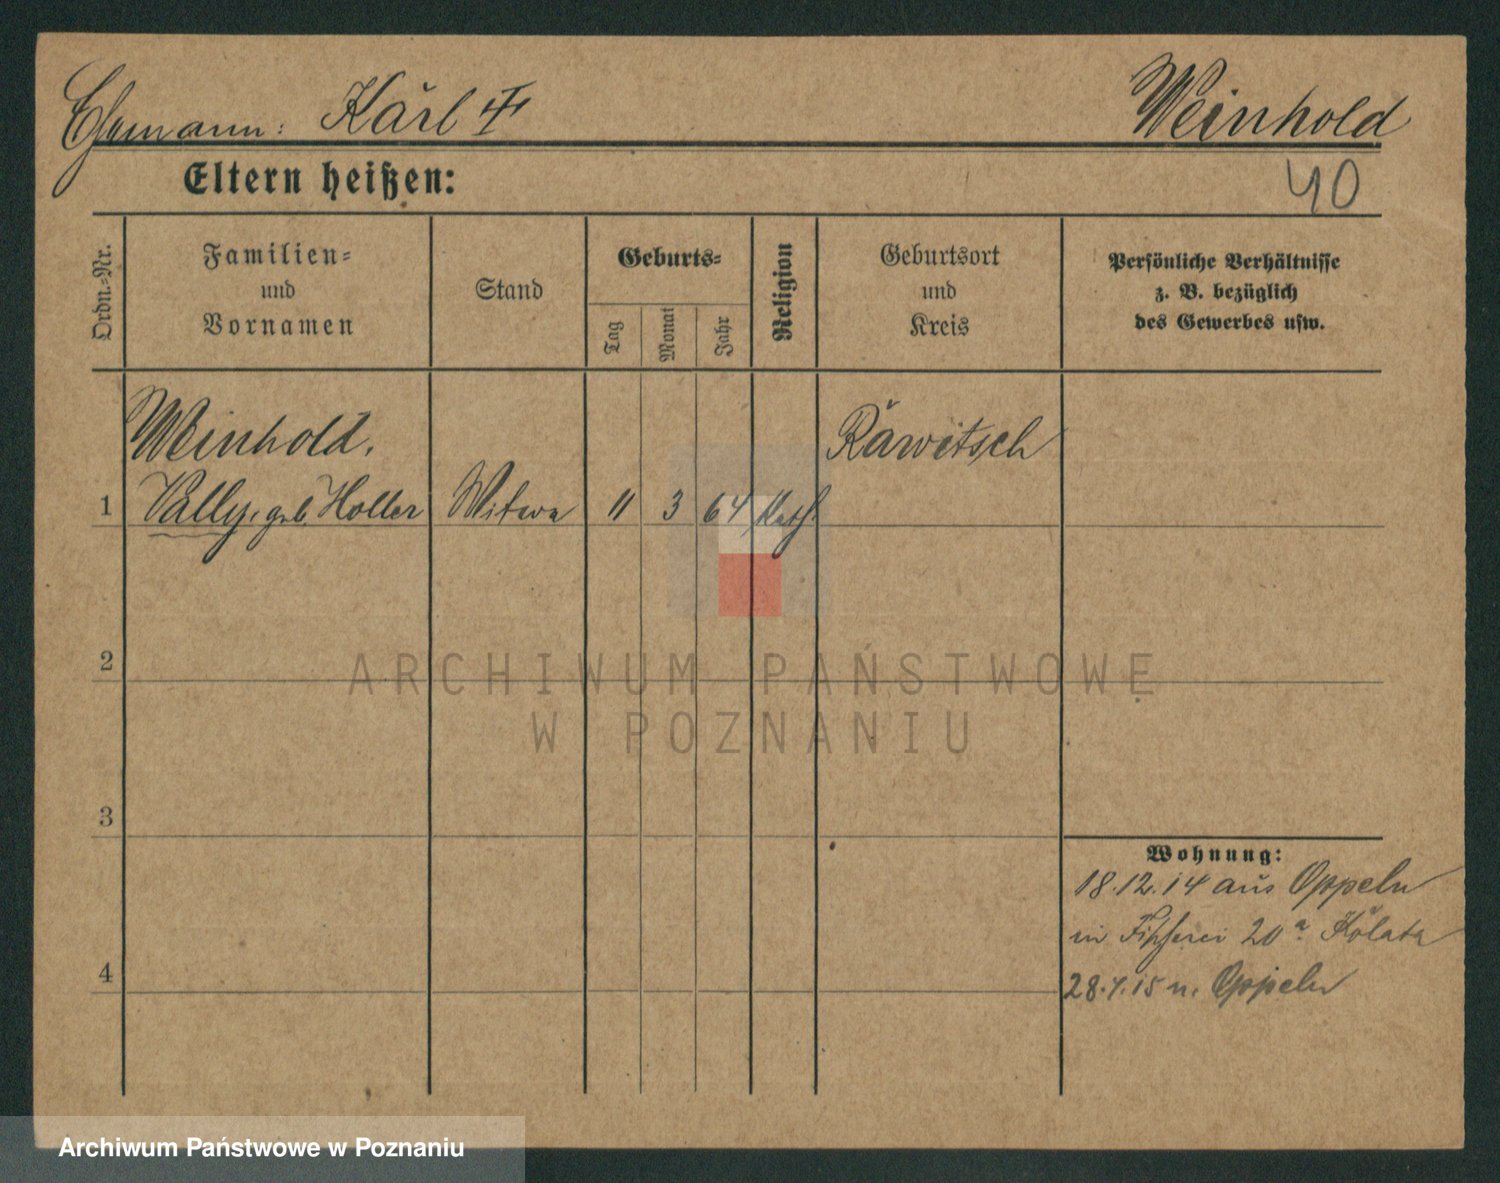 Ehemann: Karl † Weinhold
Eltern heißen:
40
Ordn.-Nr.
Familien-
und
Vornamen
Stand
Geburts-
Tag
Monat
Jahr
Religion
Geburtsort
und
Kreis
Persönliche Verhältnisse
z. B. bezüglich
des Gewerbes usw.
Weinhold,
Rawitsch
1 Vally, geb. Holler Witwe 11 3 64 kath.
2
ARCHIWUM PAŃSTWOWE
W POZNANIU
3
Wohnung:
18.12.14 aus Oppeln
in Fischerei 20a
4
28.4.15 n. Oppeln
Archiwum Państwowe w Poznaniu